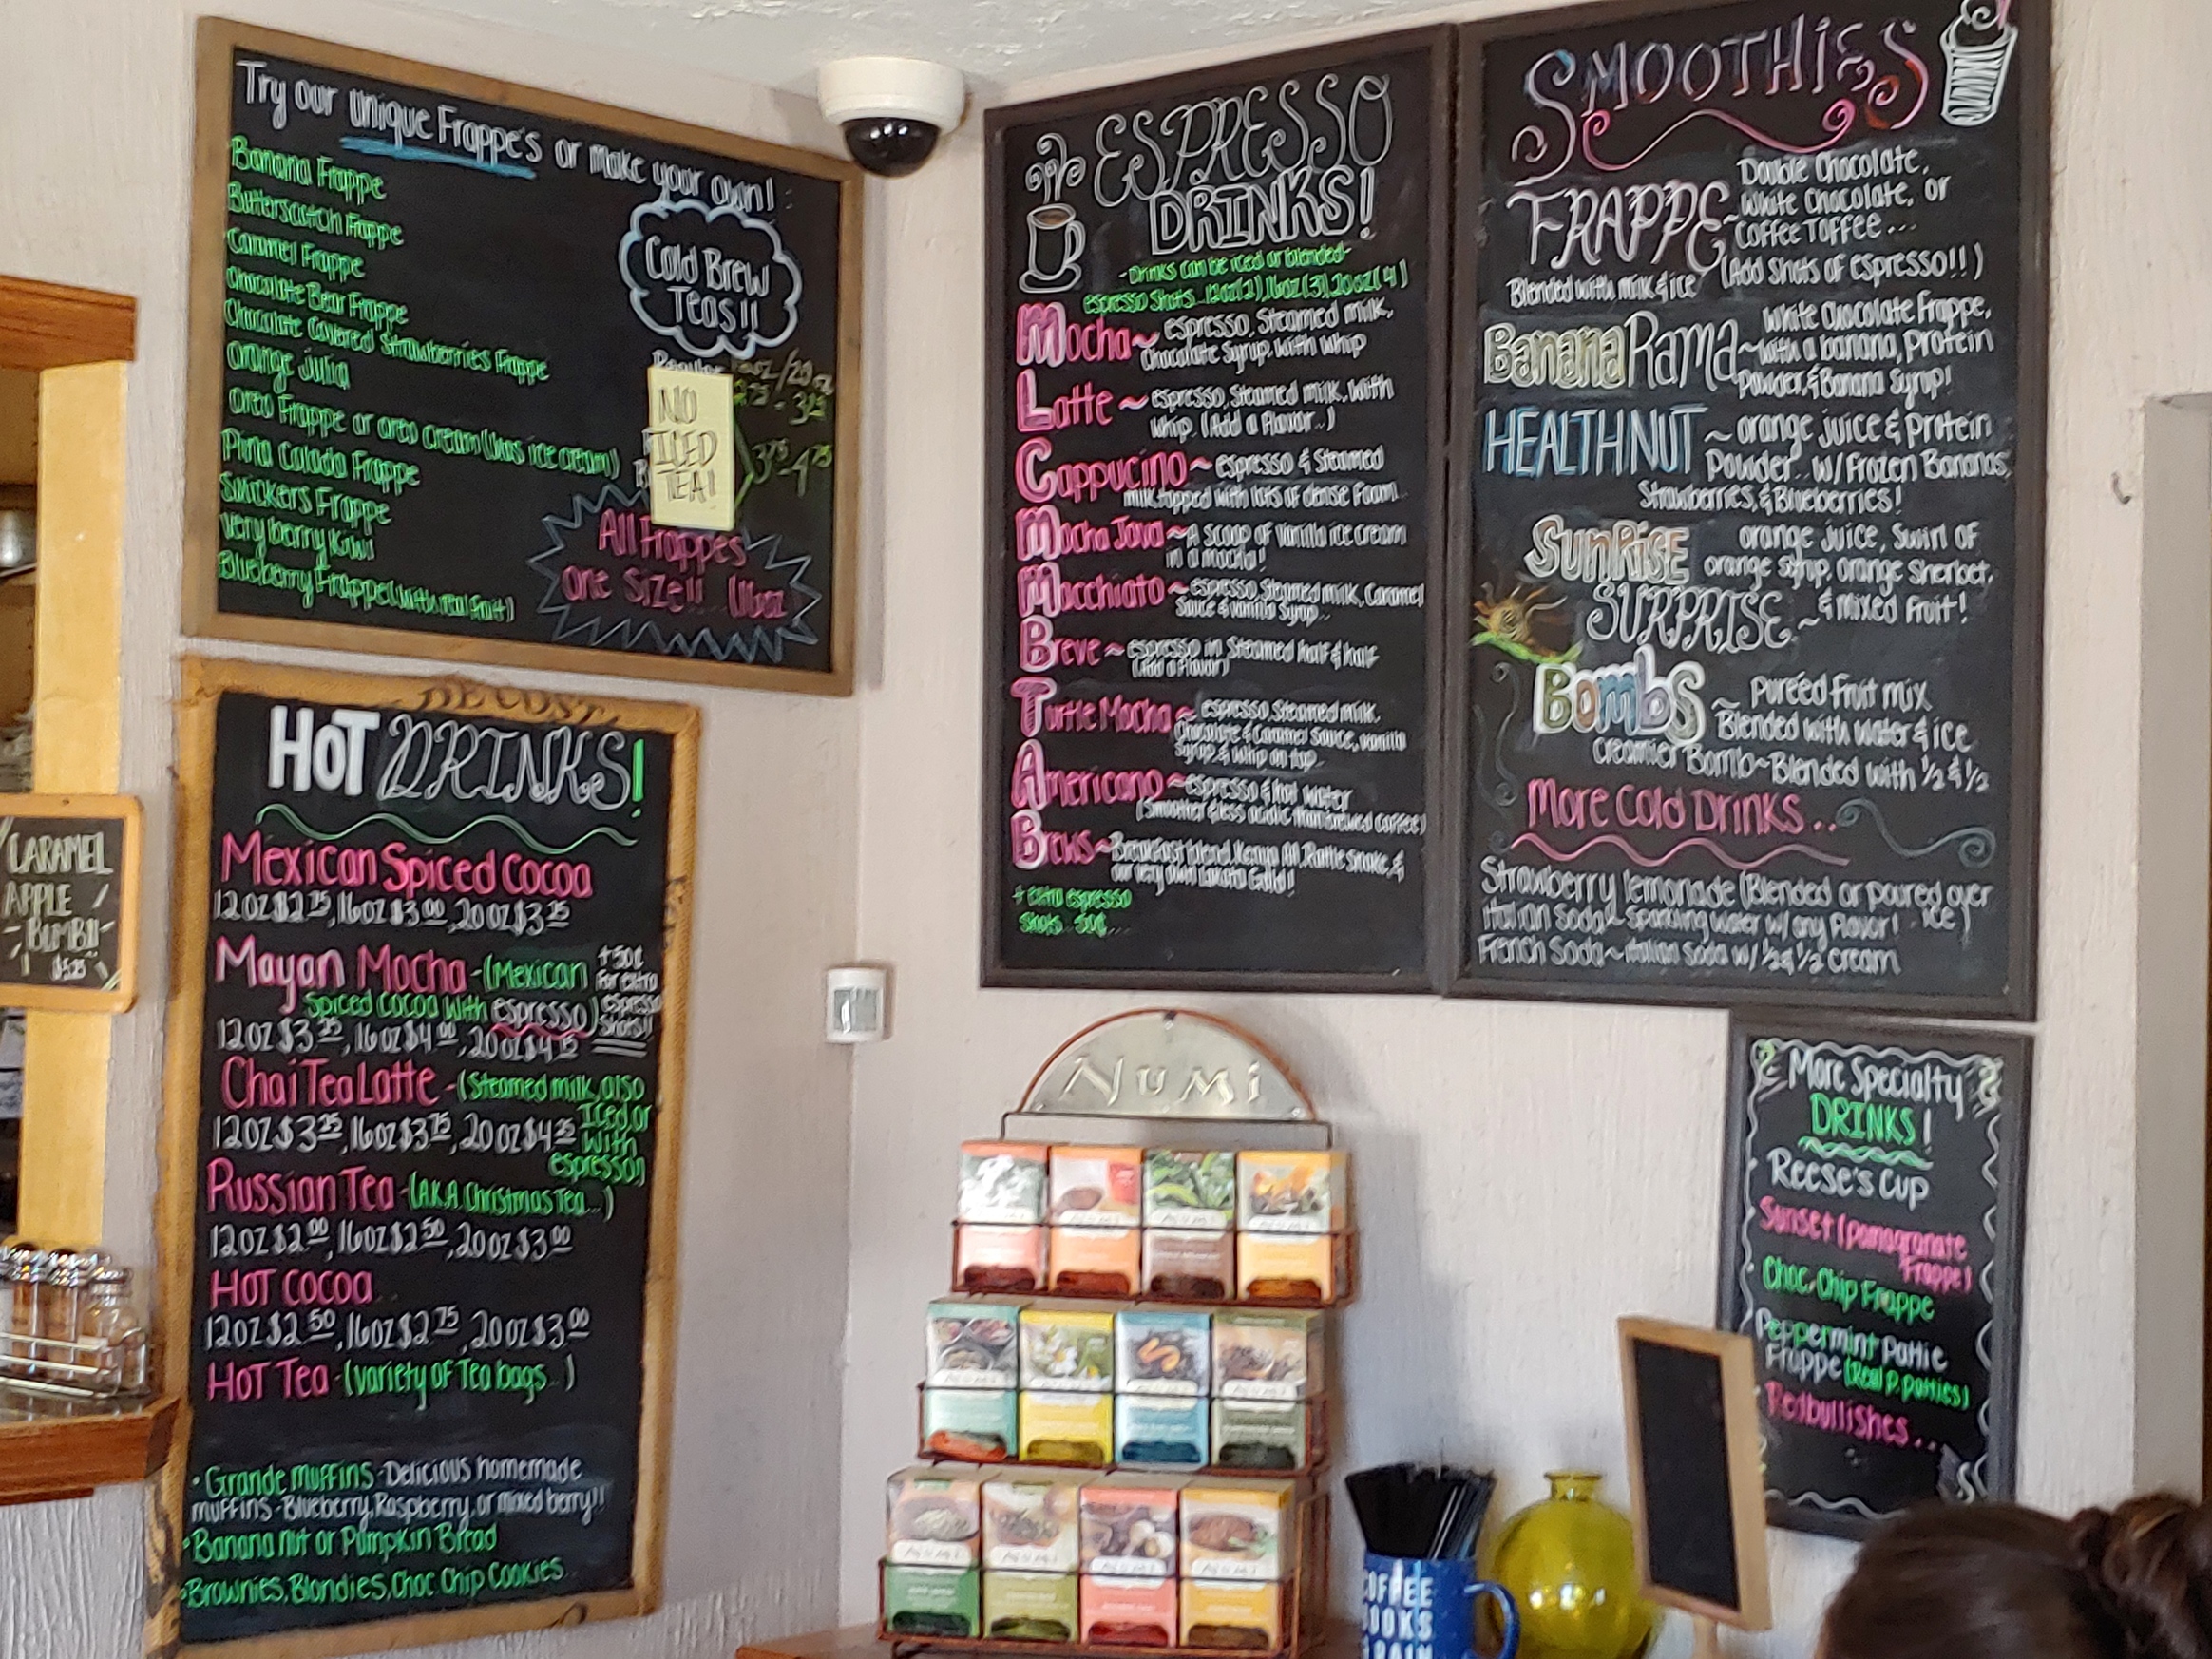 Try our unique Frappe's or make your own!
Banana Frappe
Butterscotch Frappe
Caramel Frappe
Chocolate Bear Frappe
Chocolate Covered Strawberries Frappe
Orange Julia
Oreo Frappe or oreo cream (has ice cream)
Pina Colada Frappe
Snickers Frappe
Very berry Kiwi
Blueberry Frappe (with real fruit)
Cold Brew
Teas!!
NO
ICED
TEA!
3.75 - 4.75
All Frappes
One Size!! 16oz
HOT DRINKS!
Mexican Spiced Cocoa
12oz $2.75, 16oz $3.00, 20oz $3.25
Mayan Mocha - (Mexican
Spiced Cocoa with espresso)
+50¢
For extra
espresso
Shots!!
12oz $3.25, 16oz $4.00, 20oz $4.75
Chai Tea Latte - (Steamed milk, also
Iced or
With
espresso)
12oz $3.25, 16oz $3.75, 20oz $4.25
Russian Tea - (A.K.A Christmas Tea...)
12oz $2.00, 16oz $2.50, 20oz $3.00
HOT COCOA
12oz $2.50, 16oz $2.75, 20oz $3.00
HOT Tea - (variety of Tea bags...)
• Grande Muffins - Delicious homemade
muffins - Blueberry, Raspberry, or mixed berry!!
• Banana Nut or Pumpkin Bread
• Brownies, Blondies, Choc Chip Cookies
CARAMEL
APPLE
BOMB!!
$5.25
ESPRESSO
DRINKS!
- Drinks can be iced or blended -
espresso shots... 12oz (2), 16oz (3), 20oz (4)
Mocha ~ espresso, Steamed milk,
Chocolate Syrup, With whip
Latte ~ espresso, Steamed milk, With
Whip. (Add a Flavor..)
Cappucino ~ espresso & Steamed
milk, topped with lots of dense Foam
Mocha Java ~ A Scoop of Vanilla ice cream
in a mocha!
Macchiato ~ espresso, Steamed milk, Caramel
Sauce & Vanilla Syrup..
Breve ~ espresso in Steamed half & half
(Add a Flavor)
Turtle Mocha ~ espresso, Steamed milk,
Chocolate & Caramel Sauce, vanilla
Syrup, & Whip on top..
Americano ~ espresso & hot water
(Smoother & less acidic than brewed coffee)
Brews ~ Breakfast blend, Kenya AA, Rattle Snake, &
our very own Lakota Gold!
+ extra espresso
Shots.. 50¢...
SMOOTHIES
FRAPPE ~ Double Chocolate,
White Chocolate, or
Coffee Toffee...
Blended with milk & ice (Add Shots of Espresso!!)
Banana Rama ~ White Chocolate Frappe,
With a banana, Protein
Powder, & Banana Syrup!
HEALTHNUT ~ orange juice & Protein
Powder.. w/ Frozen Bananas,
Strawberries, & Blueberries!
Sunrise
SURPRISE ~
orange juice, Swirl of
orange syrup, orange Sherbet,
& mixed Fruit!
Bombs ~ Pureéd Fruit mix
Blended with Water & ice
Creamier Bomb ~ Blended with ½ & ½
More Cold Drinks..
Strawberry lemonade (Blended or poured over
ice)
Italian Soda ~ Sparkling water w/ any Flavor!
French Soda ~ Italian Soda w/ ½ & ½ cream
More Specialty
DRINKS!
Reese's Cup
Sunset (pomagranate
Frappe)
Choc. Chip Frappe
Peppermint pattie
Frappe (Real p. patties)
Redbullishes...
NUMI
COFFEE